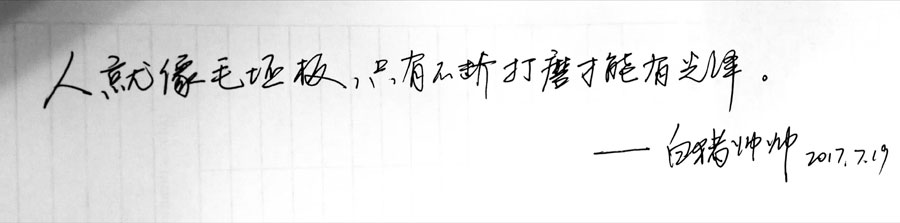 人就像毛坯板，只有不断打磨才能有光泽。
——白猪帅帅 2017.7.19